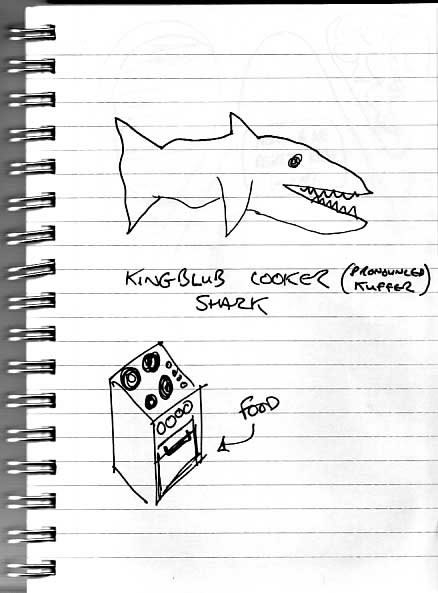 KINGBLUB COOKER (PRONOUNCED
KUFFER)
SHARK
FOOD